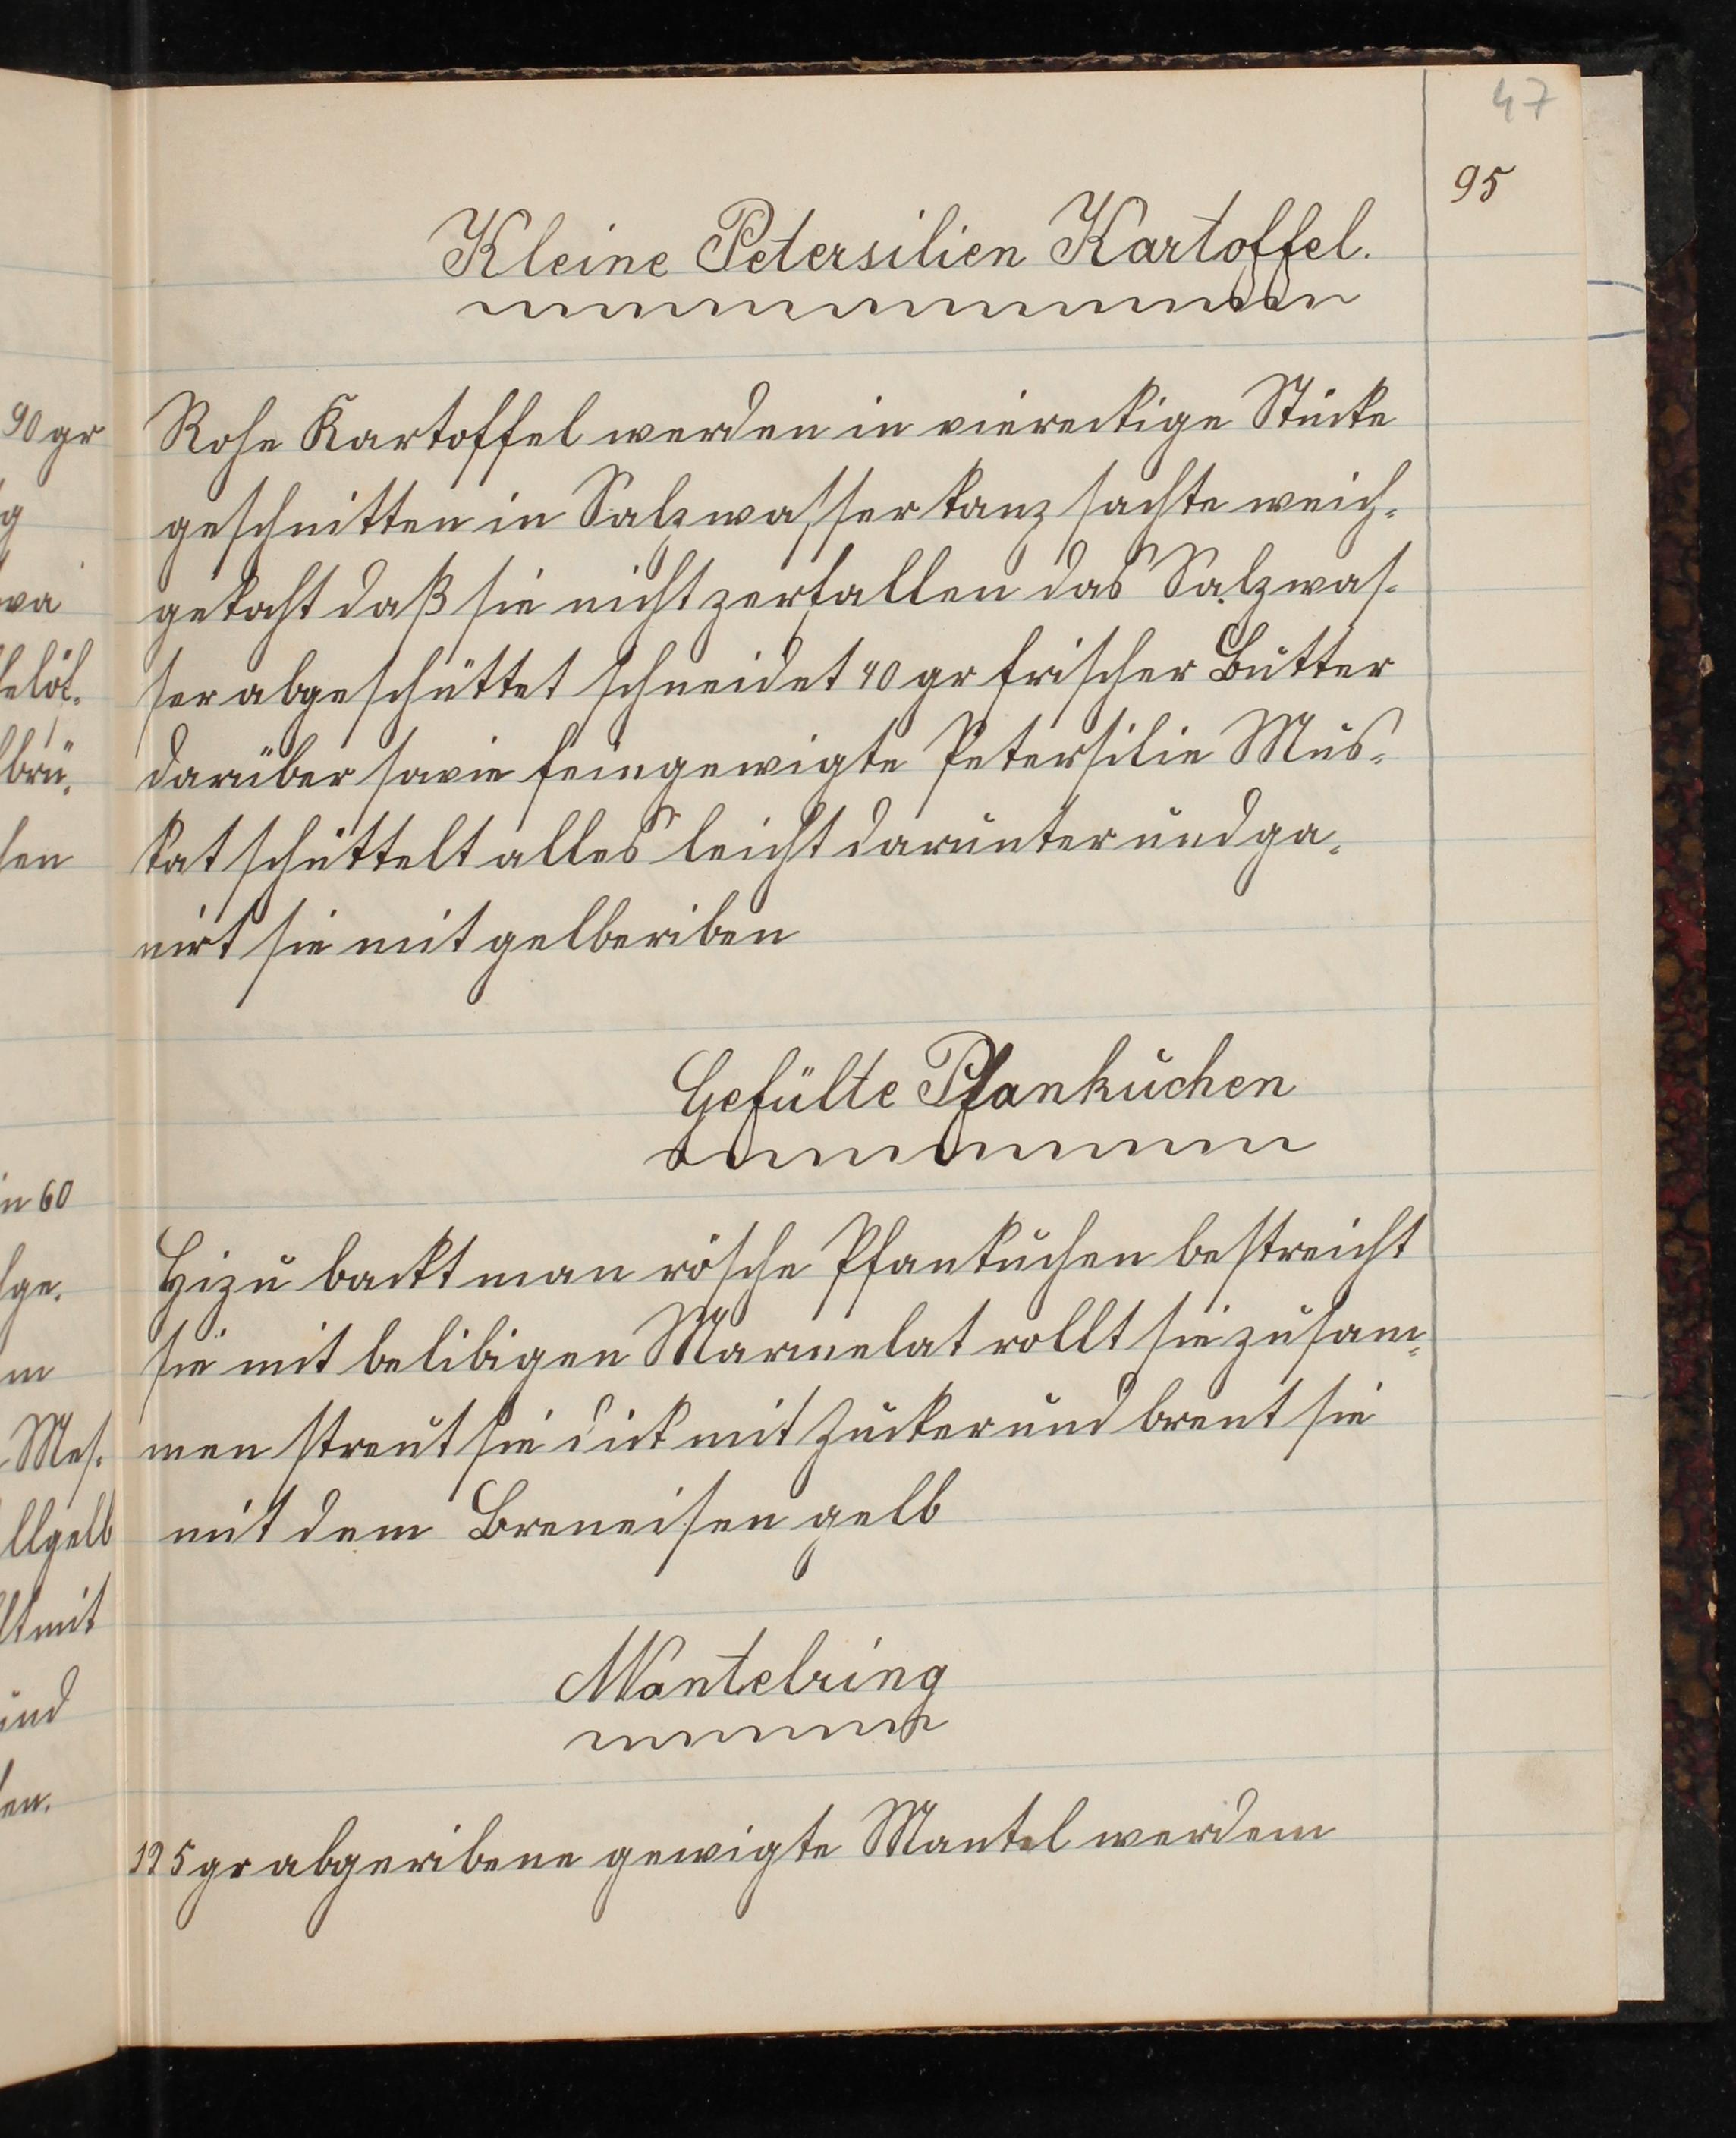 47
95
Kleine Petersilien Kartoffel.
Rohe Kartoffel werden in viereckige Stücke
geschnitten in Salzwasser kanz sachte weich-
gekocht daß sie nicht zerfallen das Salzwas-
ser abgeschüttet schneidet 40 gr frischer Butter
darüber sowie feingewigte Petersilie Mus-
kat schüttelt alles leicht darunter und ga-
nirt sie mit gelberiben
Gefülte Pfankuchen
Hizu backt man rösche Pfankuchen bestreicht
sie mit belibigen Marmelat rollt sie zusam-
men streut sie dick mit Zucker und brent sie
mit dem Breneisen gelb
Mantelring
125 gr abgeribene gewigte Mantel werdem
90 gr
g
wa
brü-
sen
in 60
ge-
m
Mes-
llgelb
lt mit
und
en.